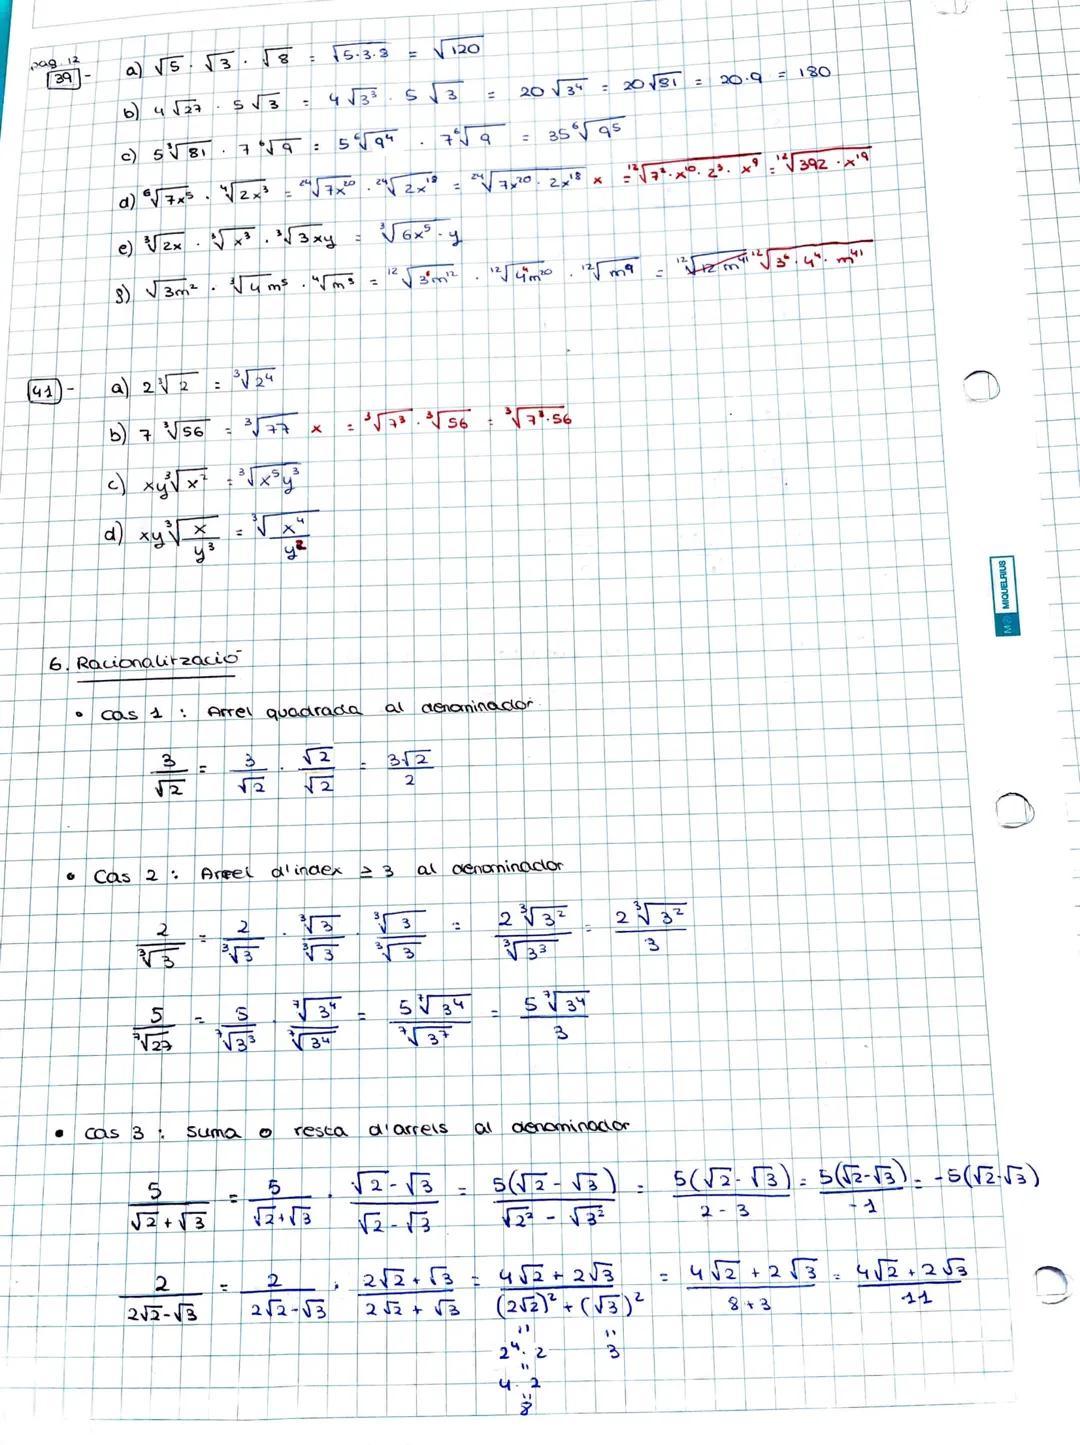 pag. 12
39 - a) √5 · √3 · √8 = √5·3·3 = √120
b) 4√27 · 5√3 = 4√3³ · 5√3 = 20√3⁴ = 20√81 = 20·9 = 180
c) 5∛81 · 7⁶√9 = 5⁶√9⁴ · 7⁶√9 = 35⁶√9⁵
d) ⁶√7x⁵ · ⁴√2x³ = ²⁴√7x²⁰ · ²⁴√2x¹⁸ = ²⁴√7x²⁰ · 2x¹⁸ x = ¹²√7² · x¹⁰ · 2³ · x⁹ = ¹²√392 · x¹⁹
e) ∛2x · ∛x³ · ∛3xy = ∛6x⁵ · y
g) √3m² · ∛4m⁵ · ⁴√m³ = ¹²√3⁶m¹² · ¹²√4⁴m²⁰ · ¹²√m⁹ = ¹²√12m⁴¹ ¹²√3⁶ · 4⁴ · m⁴¹
41 - a) 2∛2 = ∛2⁴
b) 7∛56 = ∛77 x = ∛7³ · ∛56 = ∛7³·56
c) xy∛x² = ∛x⁵y³
d) xy∛(x/y³) = ∛(x⁴/y²)
M® MIQUELRIUS
6. Racionalització
• Cas 1 : Arrel quadrada al denominador
3/√2 = 3/√2 · √2/√2 = 3√2/2
• Cas 2 : Arrel d'índex ≥ 3 al denominador
2/∛3 = 2/∛3 · ∛3/∛3 · ∛3/∛3 = 2∛3²/∛3³ = 2∛3²/3
5/⁷√27 = 5/⁷√3³ · ⁷√3⁴/⁷√3⁴ = 5⁷√3⁴/⁷√3⁷ = 5⁷√3⁴/3
• Cas 3 : Suma o resta d'arrels al denominador
5/(√2+√3) = 5/(√2+√3) · (√2-√3)/(√2-√3) = 5(√2-√3)/(√2²-√3²) = 5(√2-√3)/(2-3) = 5(√2-√3)/-1 = -5(√2-√3)
2/(2√2-√3) = 2/(2√2-√3) · (2√2+√3)/(2√2+√3) = (4√2+2√3)/((2√2)²+(√3)²) = (4√2+2√3)/(8+3) = (4√2+2√3)/11
" "
2⁴·2 3
"
4·2
"
8